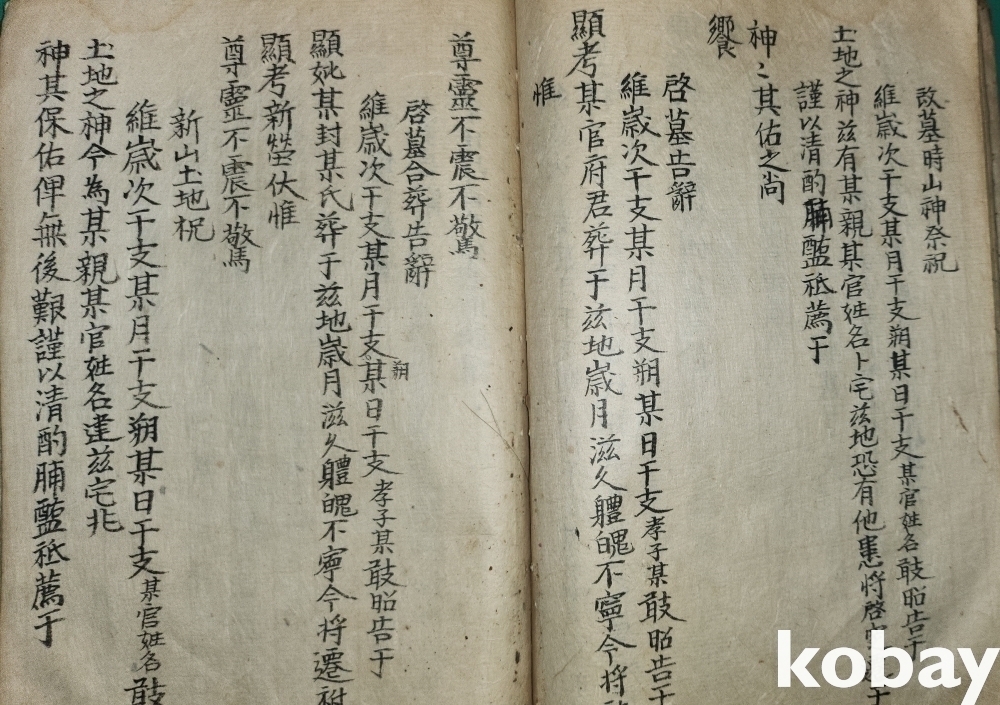 改墓時山神祭祝
維歲次干支某月干支朔某日干支某官姓名敢昭告于
土地之神玆有某親某官姓名卜宅玆地恐有他患將啓
謹以清酌脯醢祗薦于
神〻其佑之尚
饗
啓墓告辭
維歲次干支某月干支朔某日干支孝子某敢昭告于
顯考某官府君葬于玆地歲月滋久軆魄不寧今將
惟
尊靈不震不驚
啓墓合葬告辭
維歲次干支某月干支朔某日干支孝子某敢昭告于
顯妣某封某氏葬于玆地歲月滋久軆魄不寧今將遷祔
顯考新塋伏惟
尊靈不震不驚
新山土地祝
維歲次干支某月干支朔某日干支某官姓名敢
土地之神今為某親某官姓名建玆宅兆
神其保佑俾無後艱謹以清酌脯醢祗薦于
kobay